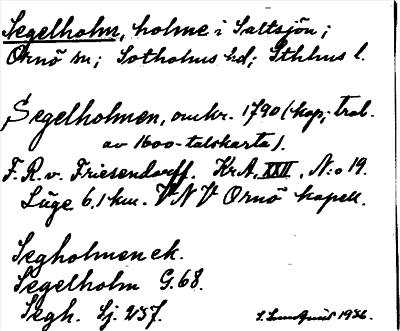 Segelholm, holme i Saltsjön;
Ornö sn; Sotholms hd; Sthlms l.
Segelholmen, omkr. 1790 (kop; trol.
av 1600-talskarta).
F. R. v. Friesendorff. Kr.A. XXII, N:o 19.
Läge 6.1 km. VNV Ornö kapell.
Segholmen ek.
Segelholm G.68.
Segh. Sj. 237.
S. Lundquist 1936.